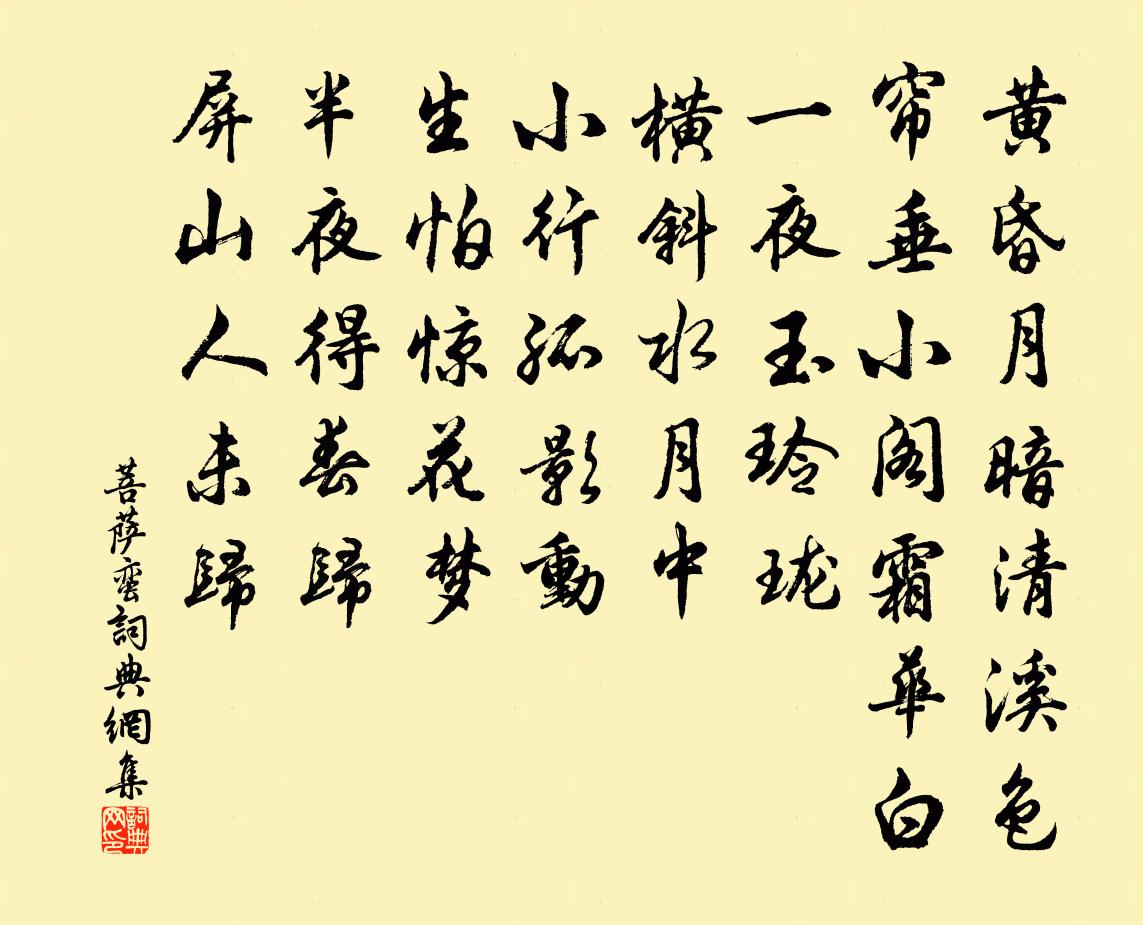 黄昏月暗清溪色
帘垂小阁霜華白
一夜玉玲珑
橫斜水月中
小行孤影動
生怕惊花梦
半夜得春歸
屏山人未歸
菩萨蛮詞典網集
詞典网印